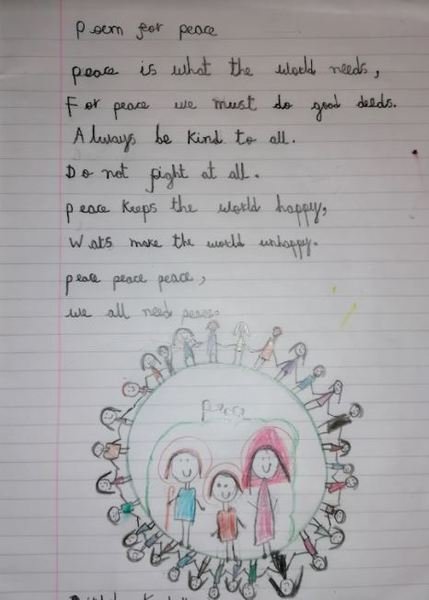 Poem for peace
peace is what the world needs,
For peace we must do good deeds.
Always be kind to all.
Do not fight at all.
peace keeps the world happy,
Wars make the world unhappy.
peace peace peace,
we all need peace.
peace